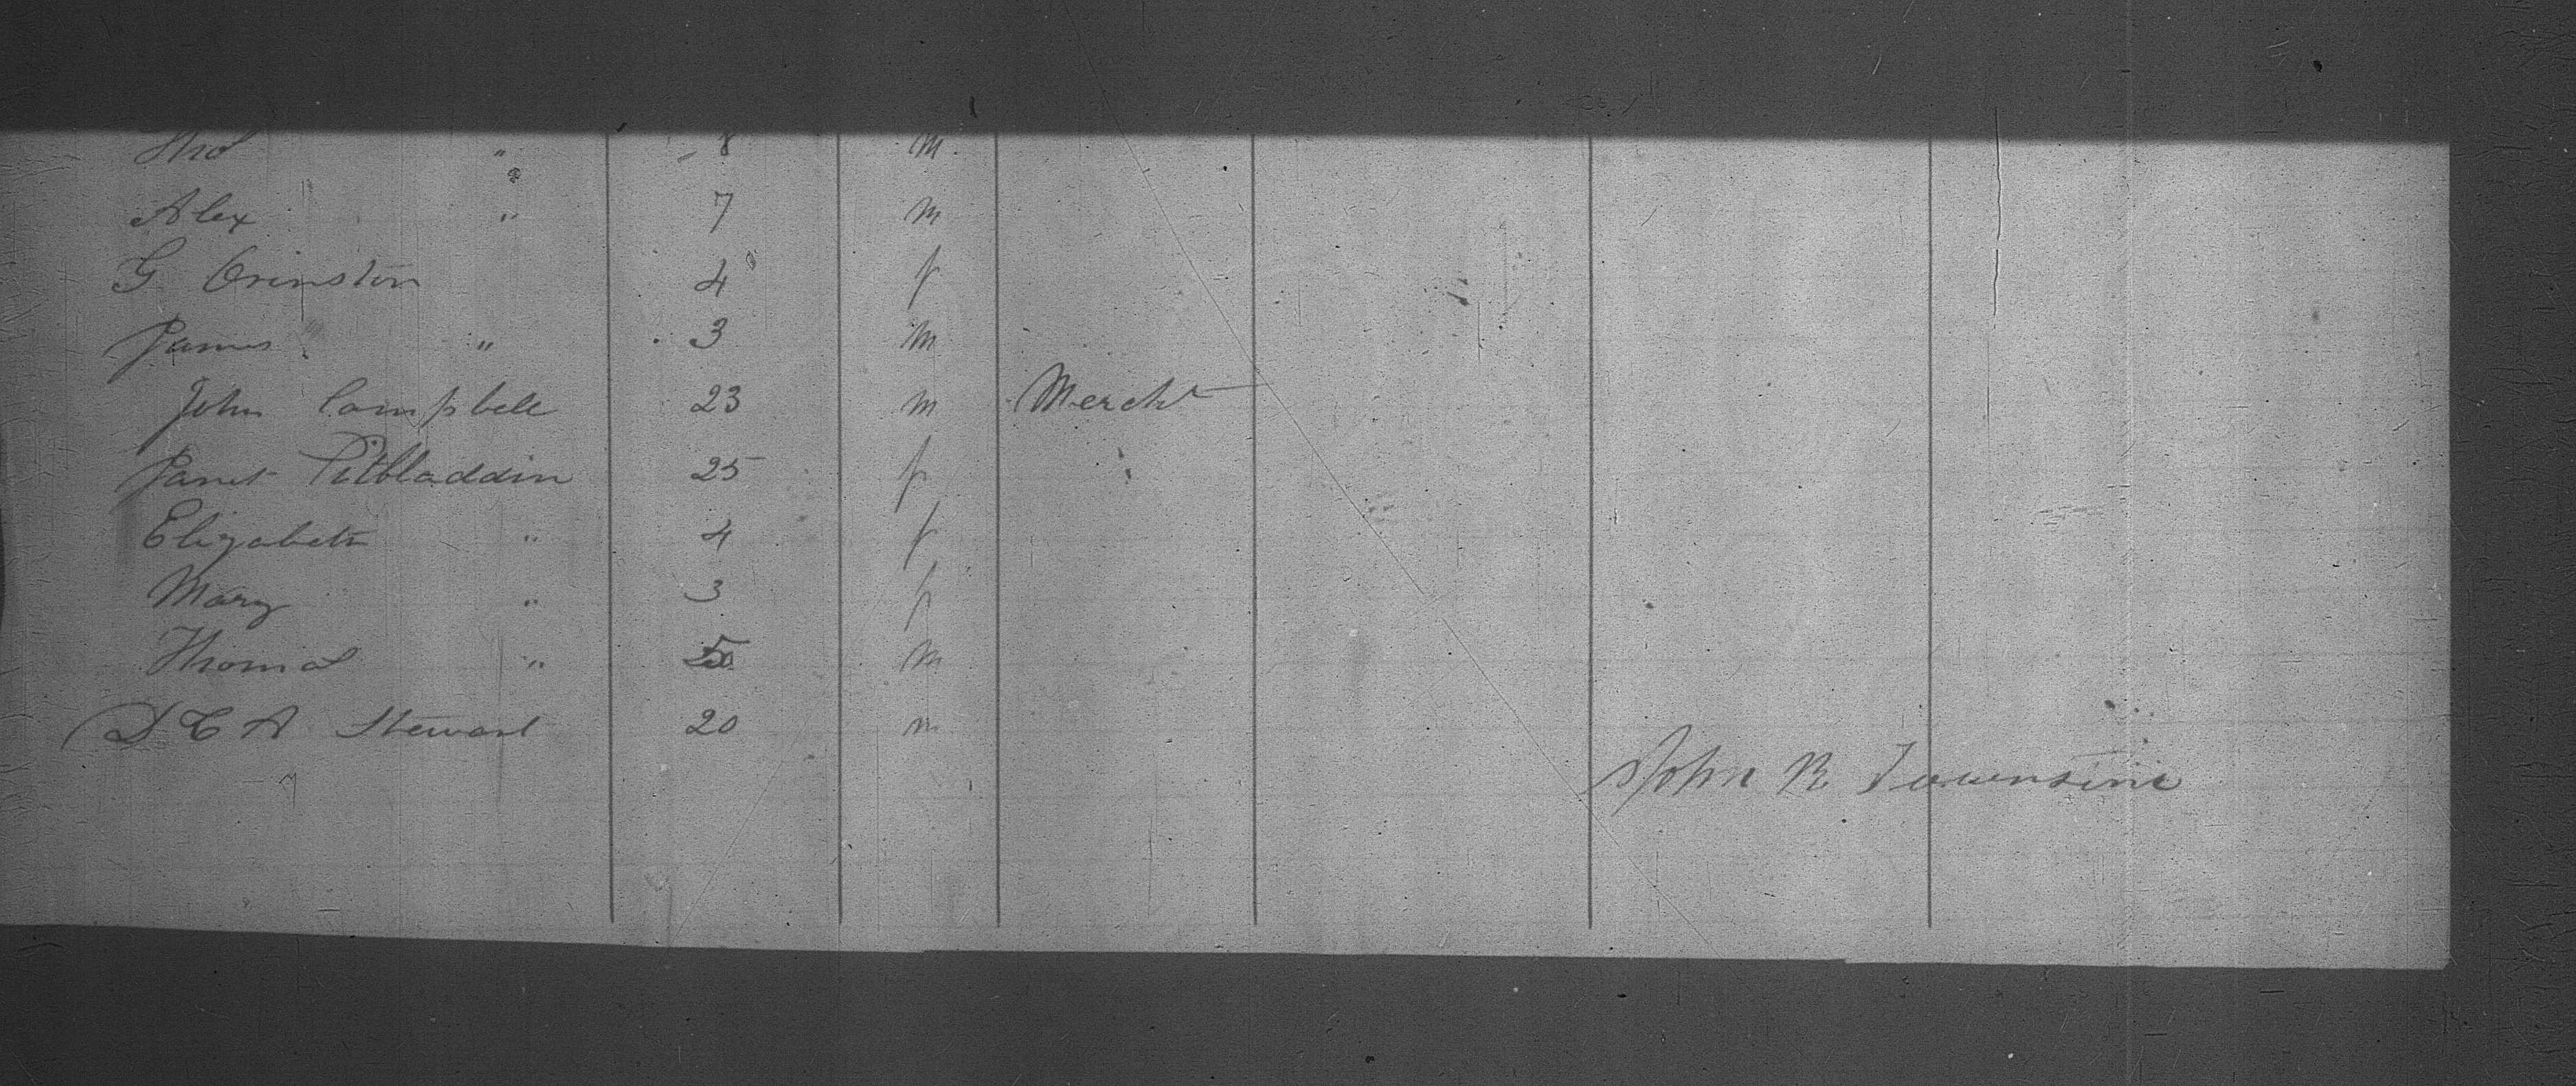 Thos " 8 m
Alex " 7 m
G Orinston 4 f
James " 3 m
John Campbell 23 m Mercht
Janet Pitbladdin 25 f
Elizabeth " 4 f
Mary " 3 f
Thomas " m
D C A Stewart 20 m
John R